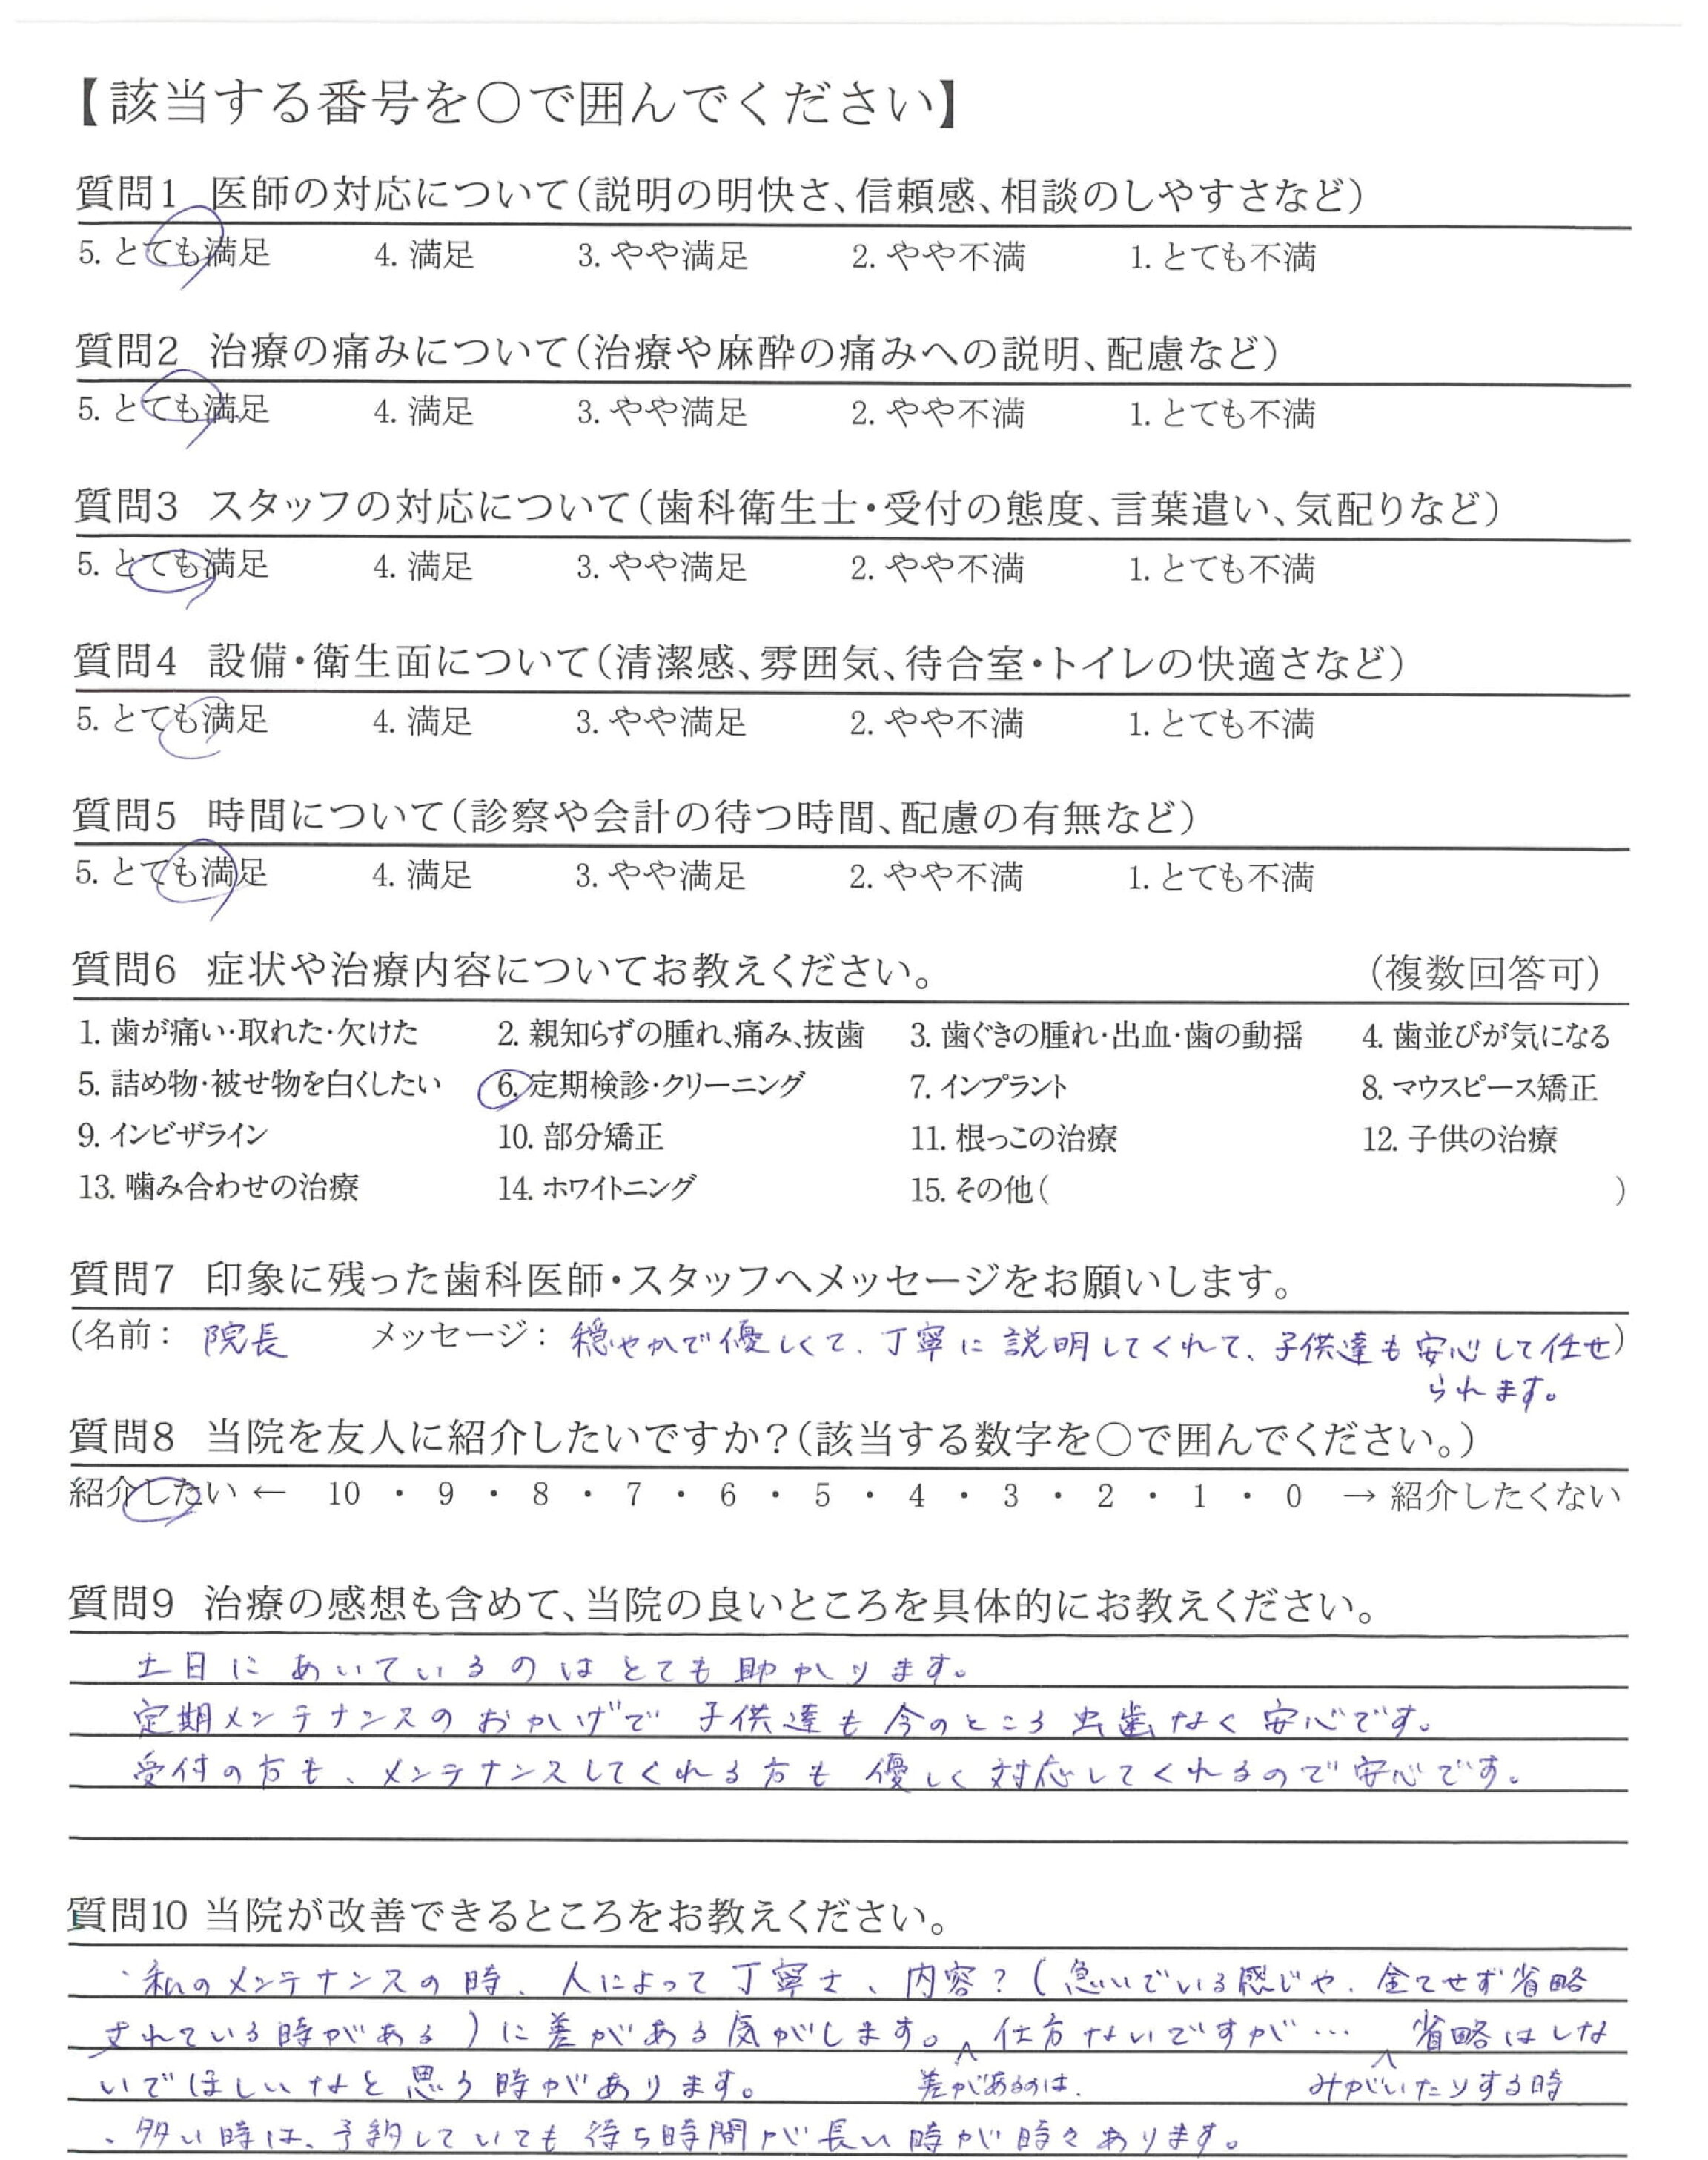 【該当する番号を○で囲んでください】
質問1 医師の対応について(説明の明快さ、信頼感、相談のしやすさなど)
5. とても満足 4. 満足 3. やや満足 2. やや不満 1. とても不満
質問2 治療の痛みについて(治療や麻酔の痛みへの説明、配慮など)
5. とても満足 4. 満足 3. やや満足 2. やや不満 1. とても不満
質問3 スタッフの対応について(歯科衛生士・受付の態度、言葉遣い、気配りなど)
5. とても満足 4. 満足 3. やや満足 2. やや不満 1. とても不満
質問4 設備・衛生面について(清潔感、雰囲気、待合室・トイレの快適さなど)
5. とても満足 4. 満足 3. やや満足 2. やや不満 1. とても不満
質問5 時間について(診察や会計の待つ時間、配慮の有無など)
5. とても満足 4. 満足 3. やや満足 2. やや不満 1. とても不満
質問6 症状や治療内容についてお教えください。 (複数回答可)
1. 歯が痛い・取れた・欠けた 2. 親知らずの腫れ、痛み、抜歯 3. 歯ぐきの腫れ・出血・歯の動揺 4. 歯並びが気になる
5. 詰め物・被せ物を白くしたい 6. 定期検診・クリーニング 7. インプラント 8. マウスピース矯正
9. インビザライン 10. 部分矯正 11. 根っこの治療 12. 子供の治療
13. 噛み合わせの治療 14. ホワイトニング 15. その他( )
質問7 印象に残った歯科医師・スタッフへメッセージをお願いします。
(名前: 院長 メッセージ: 穏やかで優しくて、丁寧に説明してくれて、子供達も安心して任せ)
られます。
質問8 当院を友人に紹介したいですか?(該当する数字を○で囲んでください。)
紹介したい ← 10 ・ 9 ・ 8 ・ 7 ・ 6 ・ 5 ・ 4 ・ 3 ・ 2 ・ 1 ・ 0 → 紹介したくない
質問9 治療の感想も含めて、当院の良いところを具体的にお教えください。
土日にあいているのはとても助かります。
定期メンテナンスのおかげで子供達も今のところ虫歯なく安心です。
受付の方も、メンテナンスしてくれる方も優しく対応してくれるので安心です。
質問10 当院が改善できるところをお教えください。
・私のメンテナンスの時、人によって丁寧さ、内容?(急いでいる感じや、全てせず省略
されている時がある)に差がある気がします。仕方ないですが… 省略はしな
いでほしいなと思う時があります。 差があるのは、 みがいたりする時
・多い時は、予約していても待ち時間が長い時が時々あります。